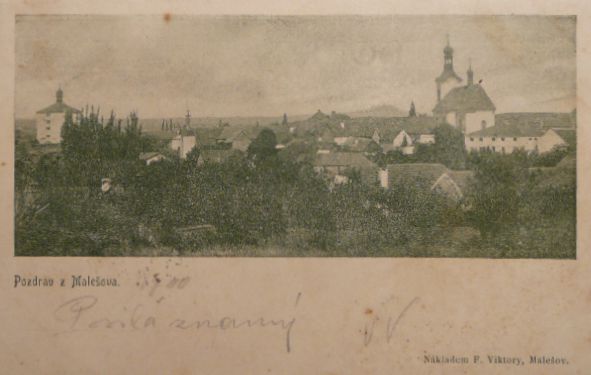 Pozdrav z Malešova.
Posílá znamý
Nákladem F. Viktory, Malešov.